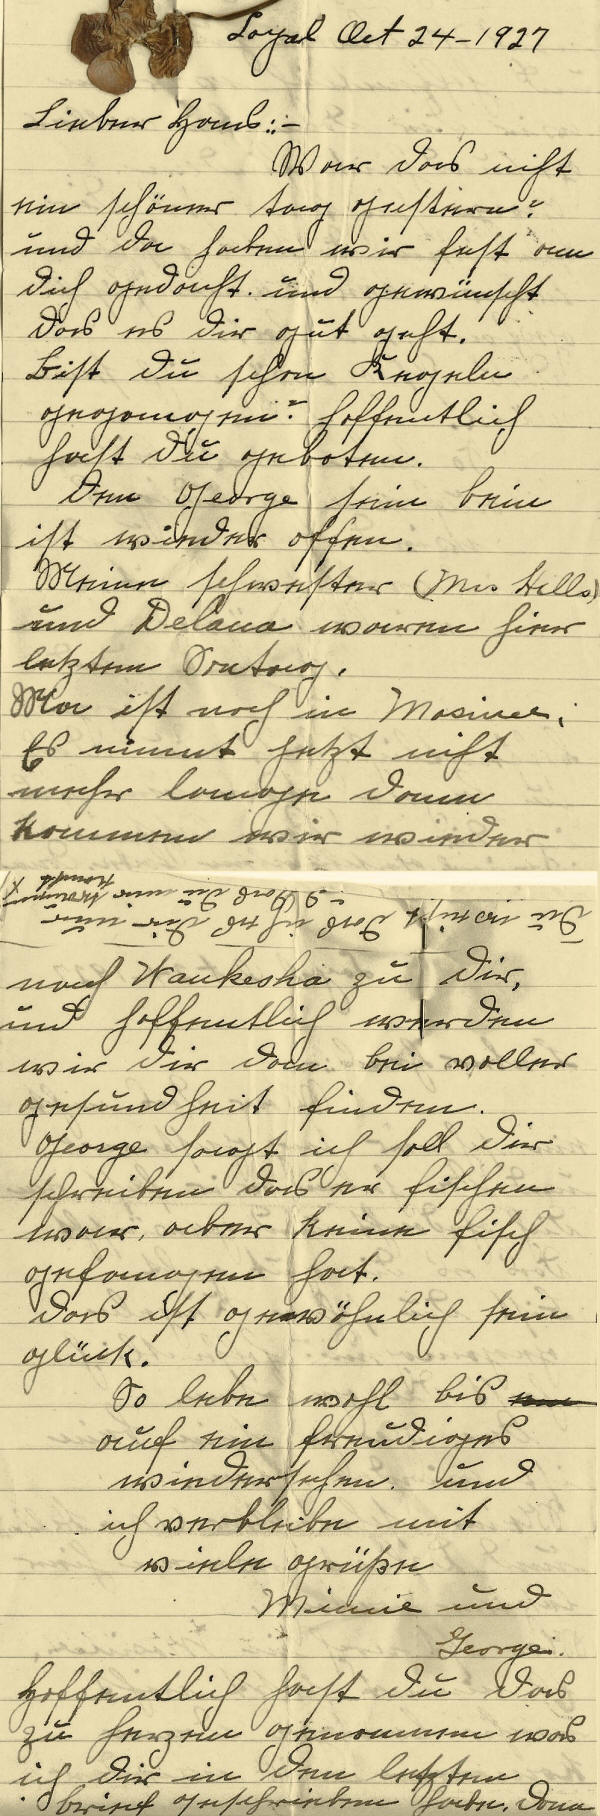 Loyal Oct 24-1927
Lieber Hans:-
War das nicht
ein schöner tag gestern?
und da haben wir fest an
dich gedacht. und gewünscht
das es dir gut geht.
Bist du schon Kegeln
gegangen? hoffentlich
hast du geboten.
Dem George sein bein
ist wieder offen.
Meine schwester (Mrs Hills)
und Delana waren hier
letzten Sontag.
Ma ist noch in Mosinee.
Es nimmt jetzt nicht
mehr lange dann
kommen wir wieder
nach Waukesha zu dir,
und hoffentlich werden
wir dir dan bei voller
gesundheit finden.
George sagt ich soll dir
schreiben das er fischen
war, aber keine fisch
gefangen hat.
das ist gewöhnlich sein
glück.
So lebe wohl bis
auf ein freudiges
wiedersehen. und
ich verbleibe mit
viele grüße
Minnie und
George.
Hoffentlich hast du das
zu herzen genommen was
ich dir in den letzten
brief geschrieben habe. Den
Du weist das ich dir nur